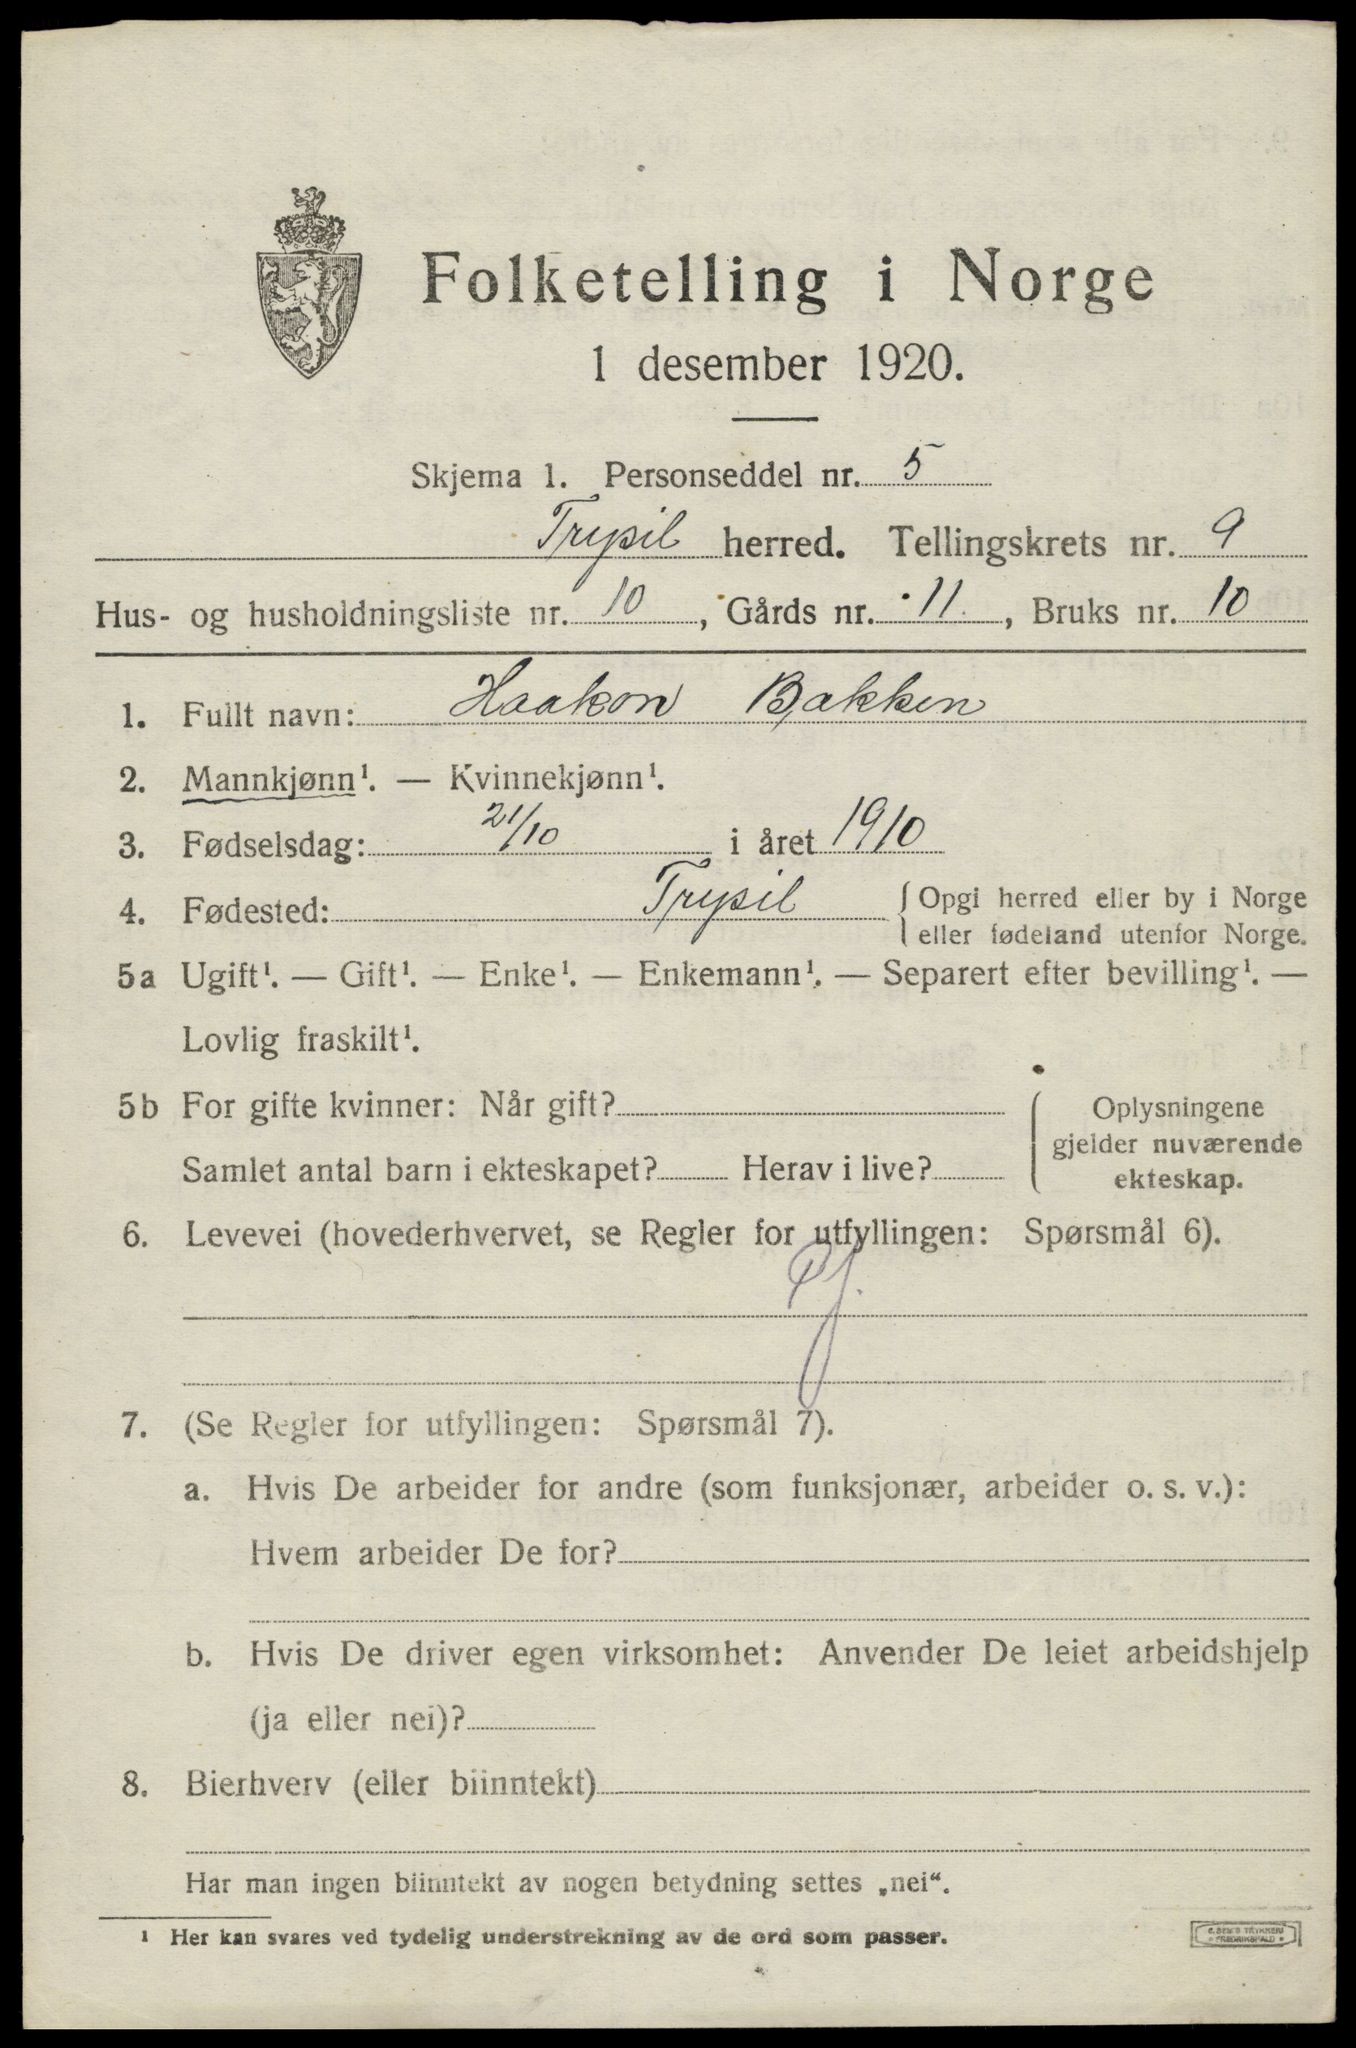 Folketelling i Norge
1 desember 1920.
Skjema 1. Personseddel nr. 5
Trysil herred. Tellingskrets nr. 9
Hus- og husholdningsliste nr. 10, Gårds nr. 11., Bruks nr. 10
1. Fullt navn: Haakon Bakken
2. Mannkjønn¹. — Kvinnekjønn¹.
3. Fødselsdag: 21/10 i året 1910
4. Fødested: Trysil { Opgi herred eller by i Norge
eller fødeland utenfor Norge.
5a Ugift¹. — Gift¹. — Enke¹. — Enkemann¹. — Separert efter bevilling¹. —
Lovlig fraskilt¹.
5b For gifte kvinner: Når gift?
Samlet antal barn i ekteskapet? Herav i live?
Oplysningene
gjelder nuværende
ekteskap.
6. Levevei (hovederhvervet, se Regler for utfyllingen: Spørsmål 6).
7. (Se Regler for utfyllingen: Spørsmål 7).
a. Hvis De arbeider for andre (som funksjonær, arbeider o. s. v.):
Hvem arbeider De for?
b. Hvis De driver egen virksomhet: Anvender De leiet arbeidshjelp
(ja eller nei)?
8. Bierhverv (eller biinntekt)
Har man ingen biinntekt av nogen betydning settes „nei“.
¹ Her kan svares ved tydelig understrekning av de ord som passer.